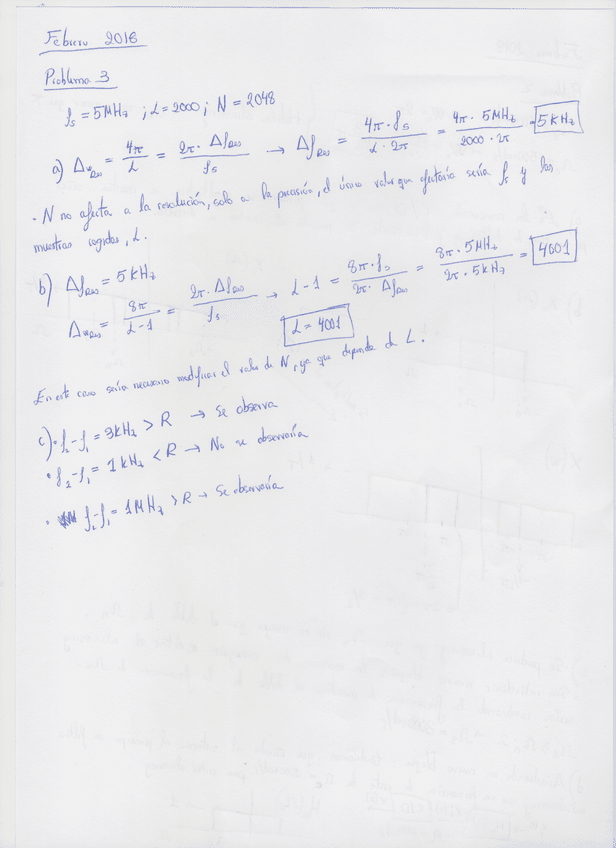 Febrero 2016
Problema 3
fs = 5MHz ; L = 2000 ; N = 2048
a) Δω_Res = 4π/L = 2π·Δf_Res/fs → Δf_Res = 4π·fs/L·2π = 4π·5MHz/2000·2π = 5kHz
· N no afecta a la resolución, solo a la precisión, el único valor que afectaría sería fs y las
muestras cogidas, L.
b) Δf_Res = 5kHz
Δω_Res = 8π/L-1 = 2π·Δf_Res/fs → L-1 = 8π·fs/2π·Δf_Res = 8π·5MHz/2π·5kHz = 4001
L = 4001
En este caso sería necesario modificar el valor de N, ya que depende de L.
c) · f2-f1 = 3kHz > R → Se observa
· f2-f1 = 1kHz < R → No se observaría
· f2-f1 = 1MHz > R → Se observaría